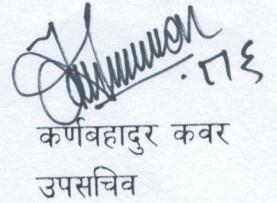 कर्णबहादुर कवर
उपसचिव